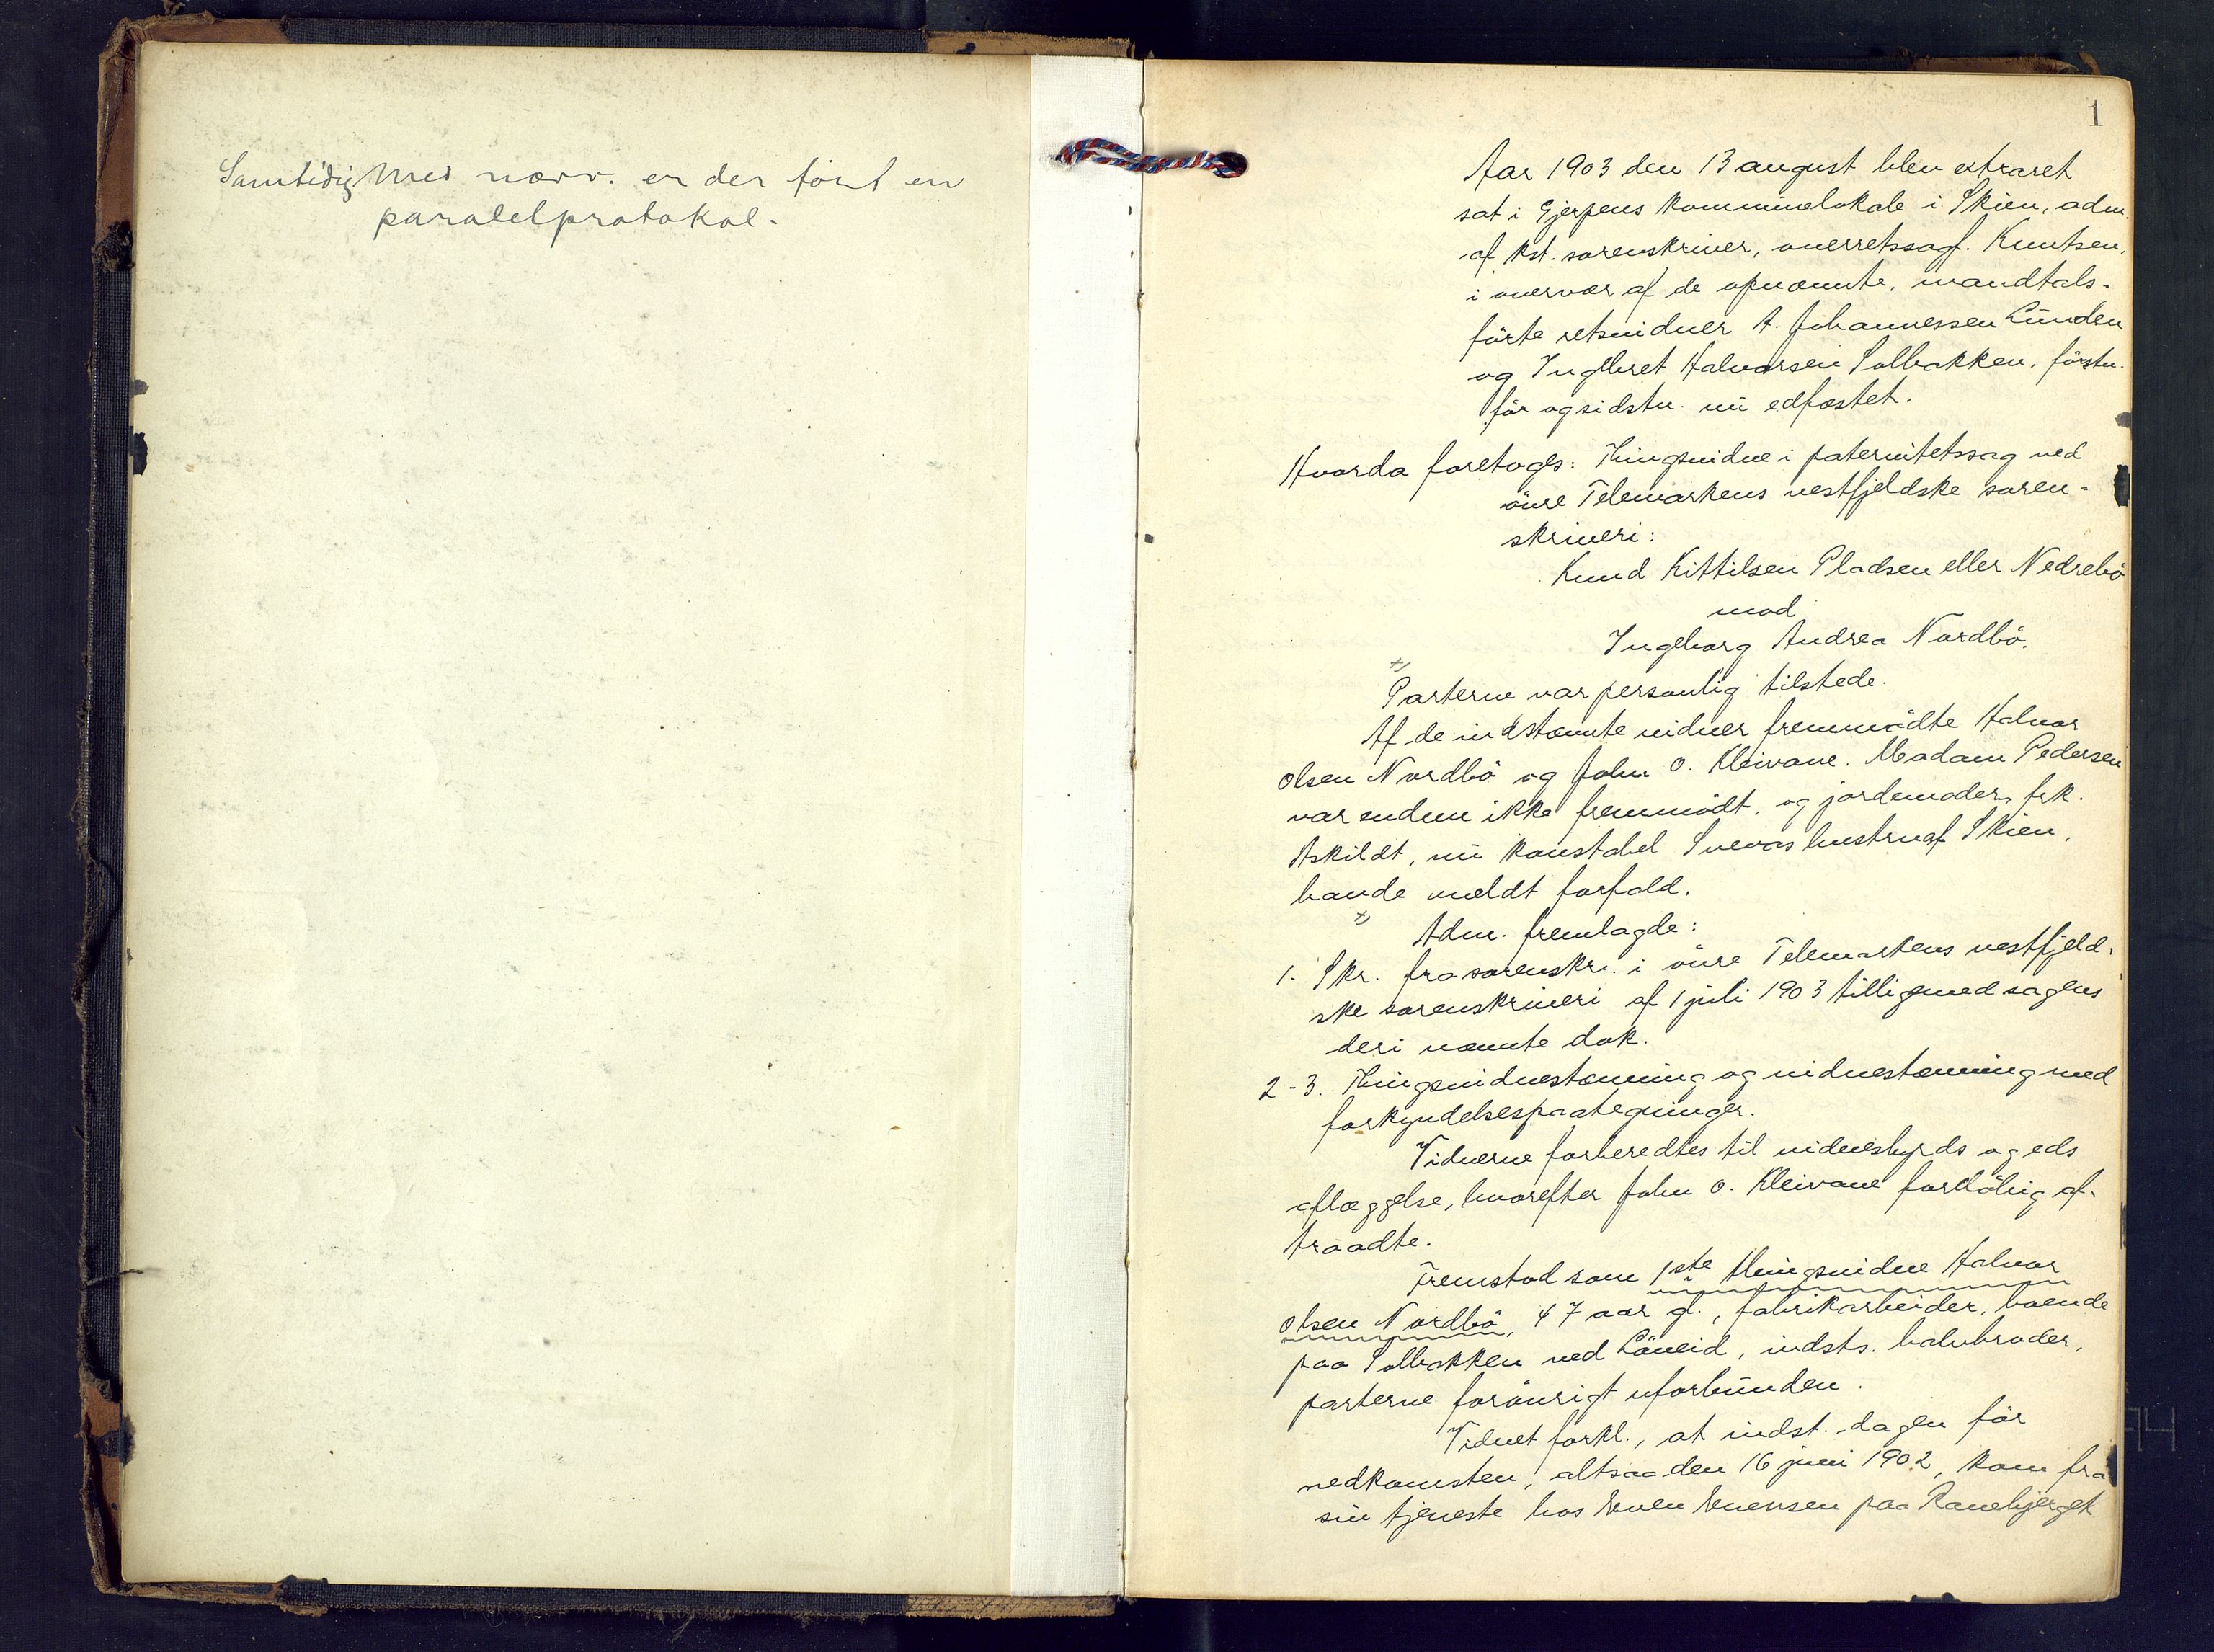 Samtidig med nærv. er der ført en
paralelprotokol.
1
Aar 1903 den 13 august blev extraret
sat i Gjerpens kommunelokale i Skien, adm.
af kst. sorenskriver, overretssagf. Knutsen,
i overvær af de opnævnte, mandtals-
førte retsvidner A. Johannessen Lunden
og Ingebret Halvorsen Solbakken, førstn.
før og sidstn. nu edfæstet.
Hvorda foretoges: Thingsvidne i paternitetssag ved
øvre Telemarkens vestfjeldske soren-
skriveri:
Knud Kittilsen Pladsen eller Nedrebø
mod
Ingeborg Andrea Nordbø.
x)
Parterne var personlig tilstede.
Af de indstævnte vidner fremmødte Halvor
Olsen Nordbø og John O. Kleivane. Madam Pedersen
var endnu ikke fremmødt, og jordemoder frk.
Askildt, nu konstabel Sveaas hustru af Skien,
havde meldt forfald.
x)
Adm. fremlagde:
1. Skr. fra sorenskr. i øvre Telemarkens vestfjeld-
ske sorenskriveri af 1 juli 1903 tilligemed sagens
deri nævnte dok.
2-3. Thingsvidnestævning og vidnestævning med
forkyndelsespaategninger.
Vidnerne forberedtes til vidnesbyrds og eds
aflæggelse, hvorefter John O. Kleivane forløbig af-
traadte.
Fremstod som 1ste thingsvidne Halvor
Olsen Nordbø, 47 aar gl., fabrikarbeider, boende
paa Solbakken ved Løveid, indsts. halvbroder,
parterne forøvrigt uforbunden.
Vidnet forkl., at indst. dagen før
nedkomsten, altsaa den 16 juni 1902, kom fra
sin tjeneste hos Even Evensen paa Ravebjerget